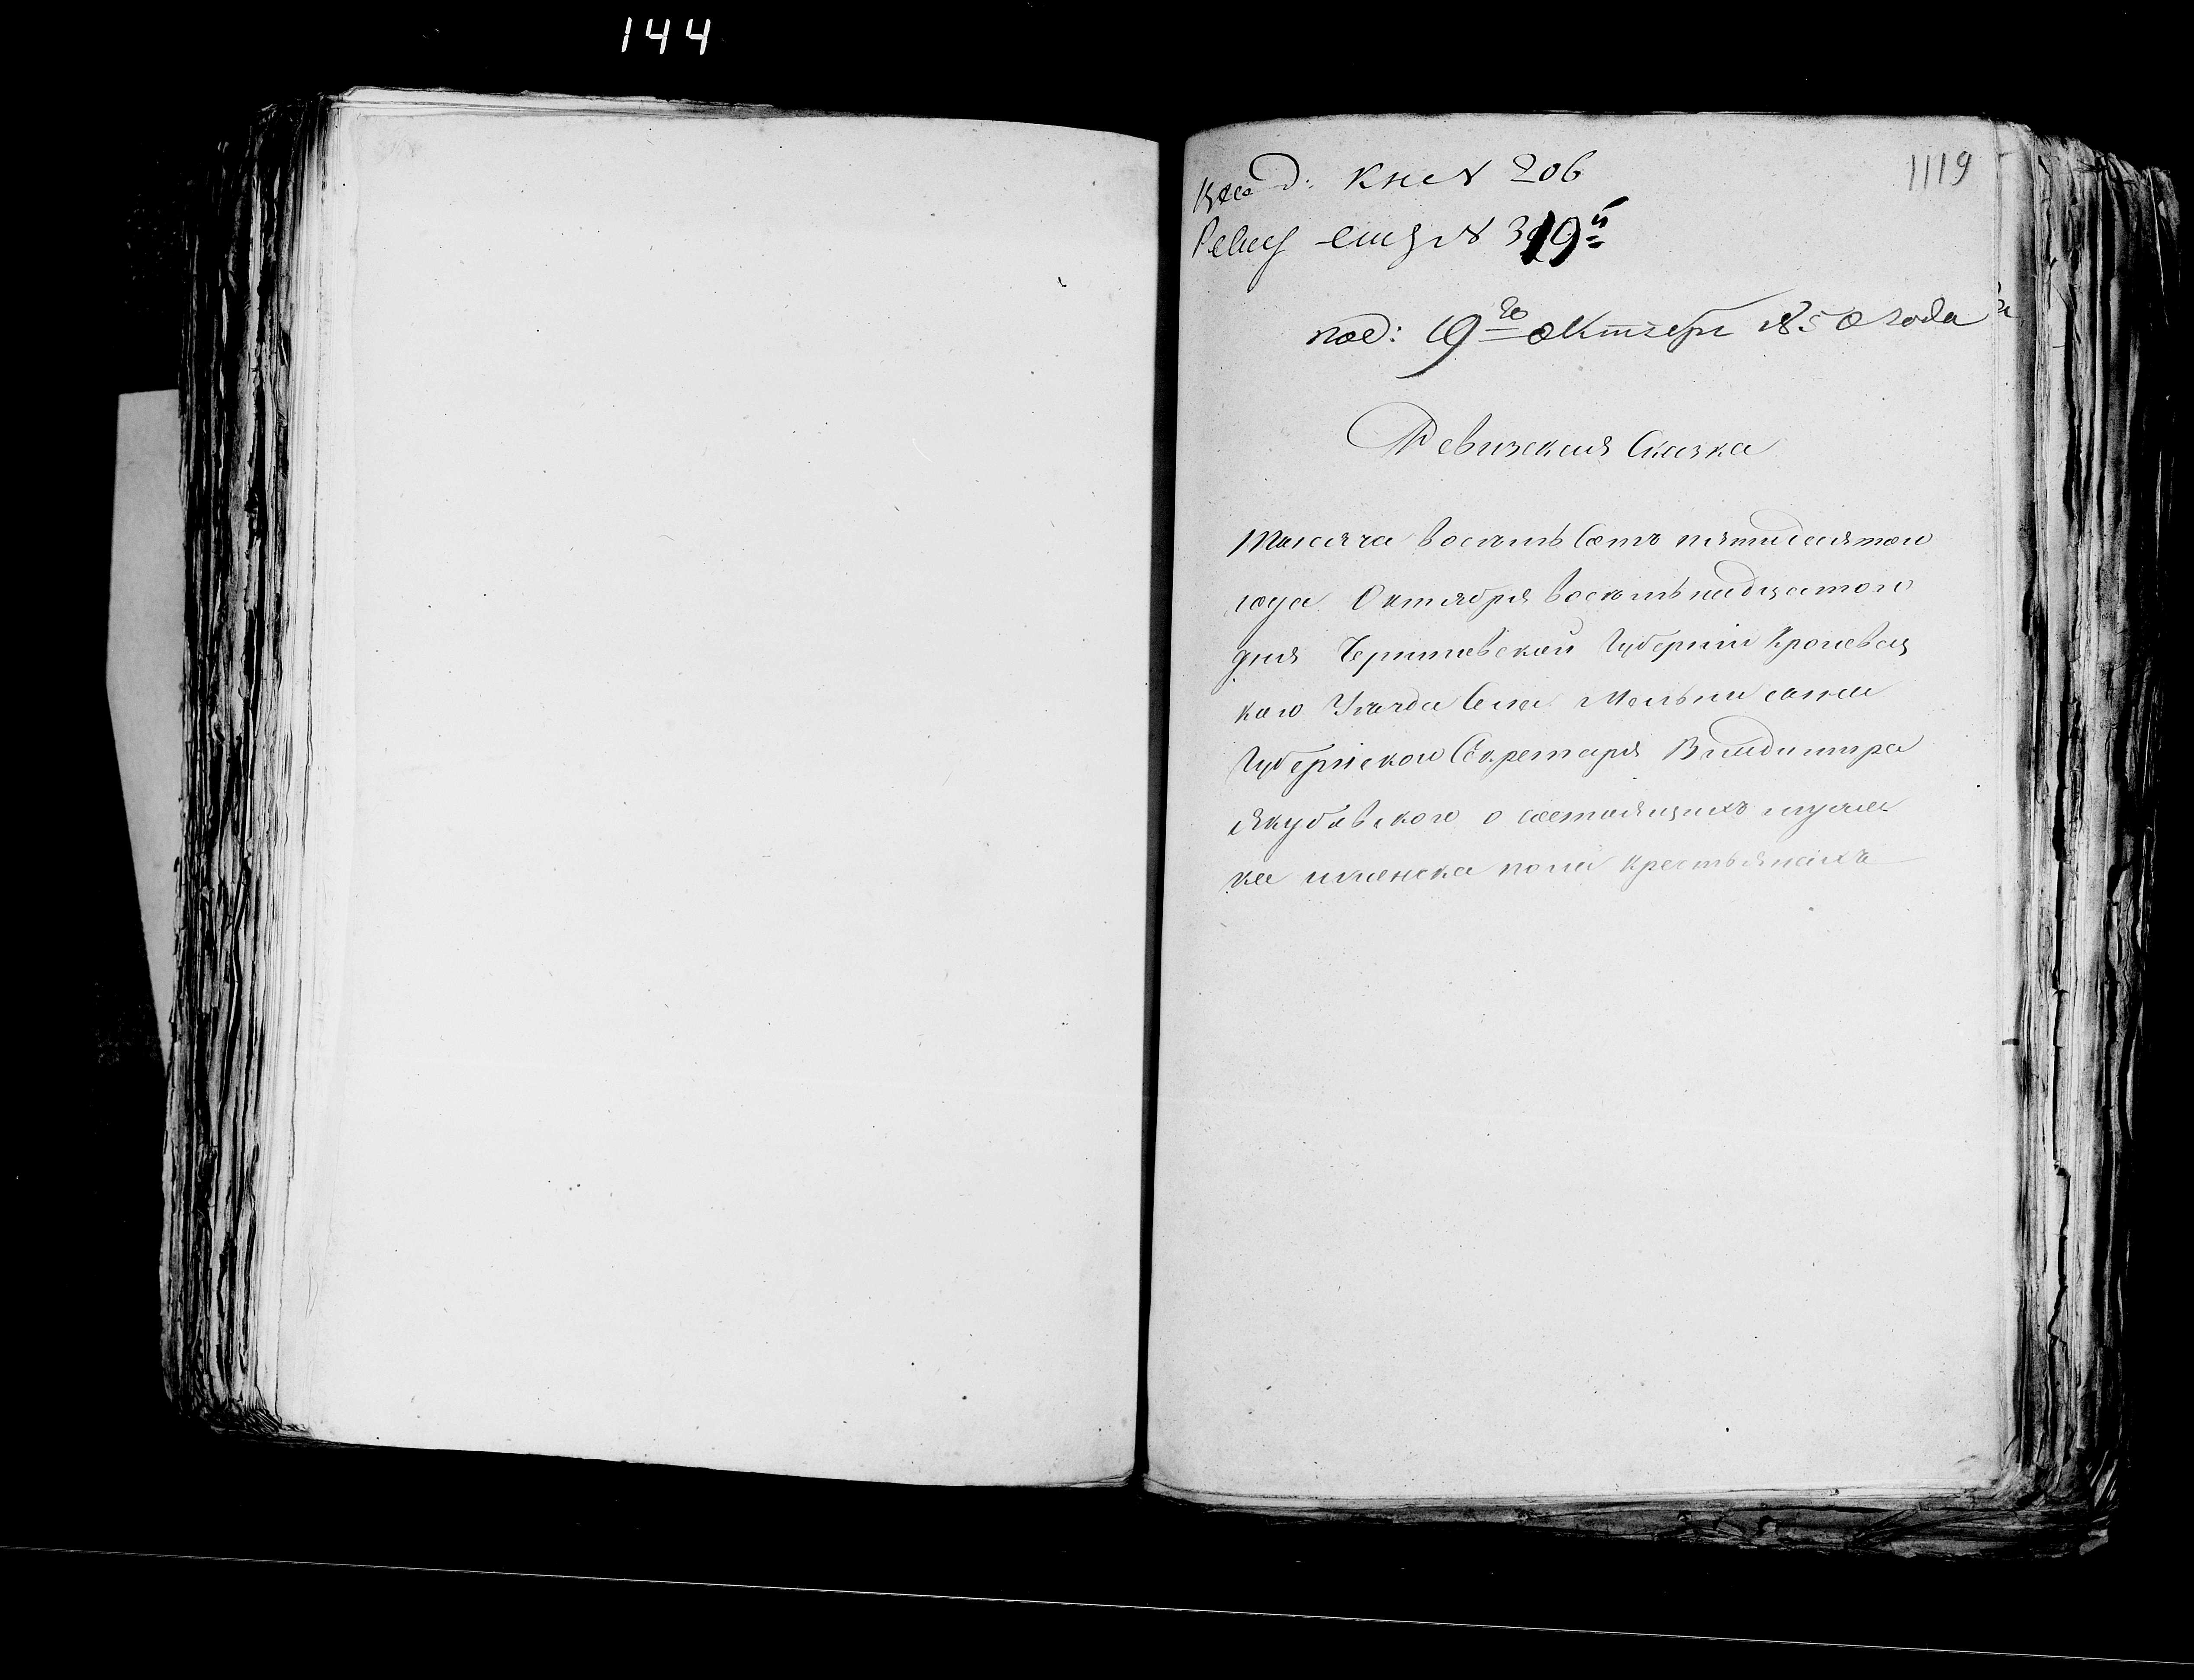 144
1119
д: кн № 206
№ 319й
под: 19го Октебре 1850 года
Ревизская Сказка
Тысяча восемь Сотъ пятидесятого
года Октября восемьнадцатого
дня Черниговской Губернии Кролевец
кого Уезда Села
Губернского Секретаря Владимира
Якубовского о состоящихъ мужес
ка иженска пола крестьянахъ